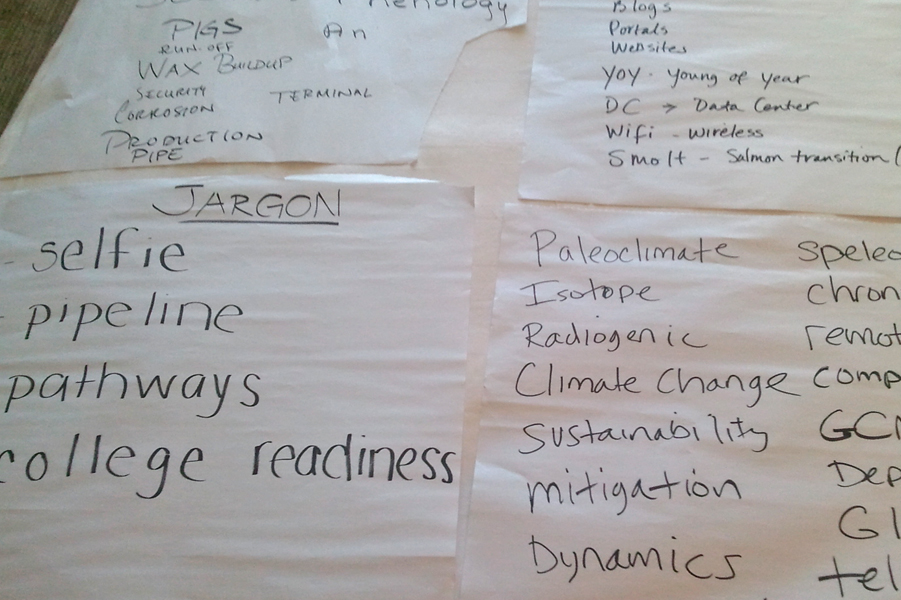 PIGS
RUN-OFF
WAX BUILDUP
SECURITY
CORROSION
TERMINAL
PRODUCTION
PIPE
Blogs
Portals
Websites
YOY - Young of Year
DC → Data Center
Wifi - Wireless
Smolt - Salmon transition (
JARGON
- selfie
- pipeline
pathways
college readiness
Paleoclimate
Isotope
Radiogenic
Climate Change
Sustainability
mitigation
Dynamics
speleo
chron
remot
comp
Dep
tel